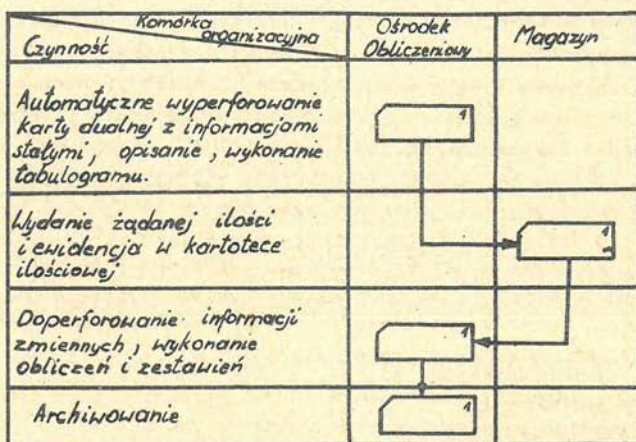 Komórka organizacyjna
Czynność
Ośrodek
Obliczeniowy
Magazyn
Automatyczne wyperforowanie
karty dualnej z informacjami
stałymi, opisanie, wykonanie
tabulogramu.
1
Wydanie żądanej ilości
i ewidencja w kartotece
ilościowej
1
Doperforowanie informacji
zmiennych, wykonanie
obliczeń i zestawień
1
Archiwowanie
1